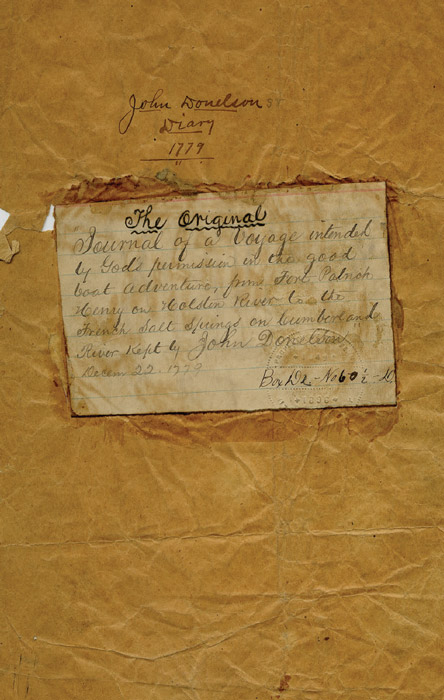 John Donelson Sr
Diary
1779
The Original
"Journal of a Voyage intended
by God's permission in the good
boat Adventure, from Fort Patrick
Henry on Holston River to the
French Salt Springs on Cumberland
River Kept by John Donelson"
Decem 22 1779
Box D2 - No 60 ½